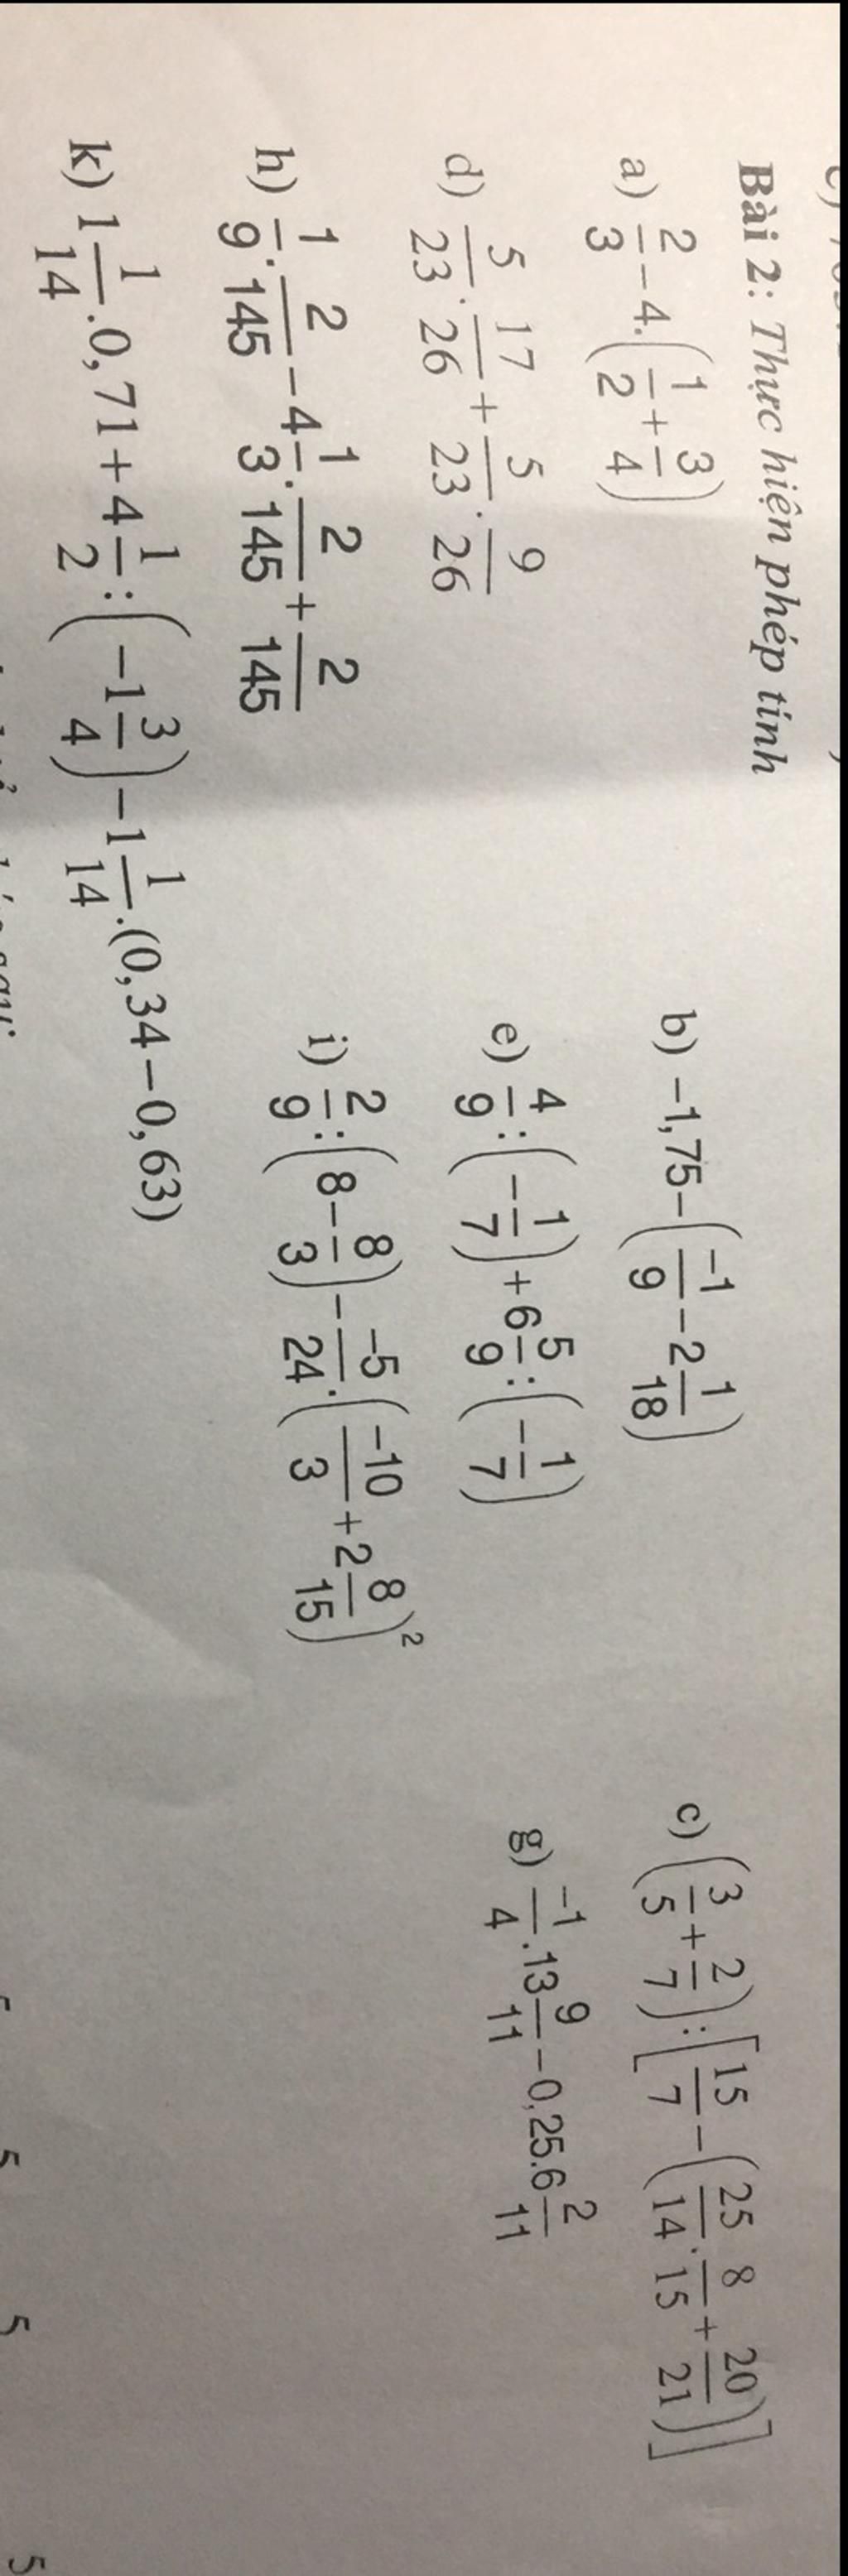 Bài 2: Thực hiện phép tính
a) 2/3 − 4.(1/2 + 3/4) b) −1,75 − (−1/9 − 2 1/18) c) (3/5 + 2/7) : [15/7 − (25/14 . 8/15 + 20/21)]
d) 5/23 . 17/26 + 5/23 . 9/26 e) 4/9 : (−1/7) + 6 5/9 : (−1/7) g) −1/4 . 13 9/11 − 0,25.6 2/11
h) 1/9 . 2/145 − 4 1/3 . 2/145 + 2/145 i) 2/9 : (8 − 8/3) − −5/24 . (−10/3 + 2 8/15)²
k) 1 1/14 . 0,71 + 4 1/2 : (−1 3/4) − 1 1/14 . (0,34 − 0,63)
5 5 5